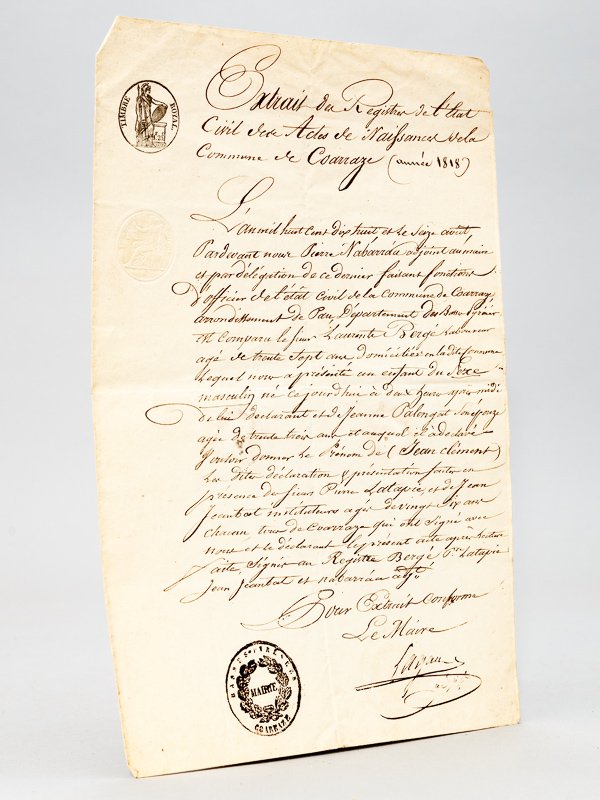 TIMBRE ROYAL
Extrait du Registre de l'état
Civil des Actes de Naissances de la
Commune de Coarraze (année 1818)
L'an mil huit cent dix huit et le seize avril
Pardevant nous Pierre Nabarraa adjoint au maire
et par délégation de ce dernier faisant fonctions
D'officier de l'état Civil de la Commune de Coarraze
arrondissement de Pau, Département des Basses Pyrénées
est Comparu le sieur Laurent Bergé Laboureur
agé de trente sept ans domicilié en la dite Commune
Lequel nous a présenté un enfant du Sexe
masculin né ce jourd'hui à deux heures après midi
de lui déclarant et de Jeanne Palongat Son épouze
agée de trente trois ans et auquel il a déclaré
Vouloir donner Le Prénom de (Jean Clément)
Les dites déclaration & présentation faites en
présence des sieurs Pierre Latapie, et de Jean
Jeanbat instituteurs agés de vingt six ans
chacun tous de Coarraze qui ont signé avec
nous et le déclarant le présent acte après lecture
faite, Signés au Registre Bergé Pre Latapie
Jean Jeanbat et nabarraa adjt
Pour Extrait Conforme
Le Maire
BASSES PYRENEES
MAIRIE
COARRAZE